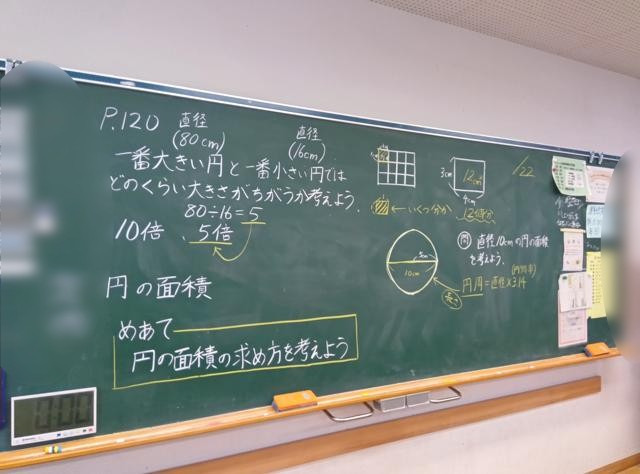 P.120
直径
(80cm)
直径
(16cm)
一番大きい円と一番小さい円では
どのくらい大きさがちがうか考えよう。
80÷16=5
10倍、5倍
円の面積
めあて
円の面積の求め方を考えよう
3cm
12cm²
4cm
←いくつ分か
12個分
1/22
問 直径10cmの円の面積
を考えよう。
5cm
10cm
(円周率)
円周=直径×3.14
長さ